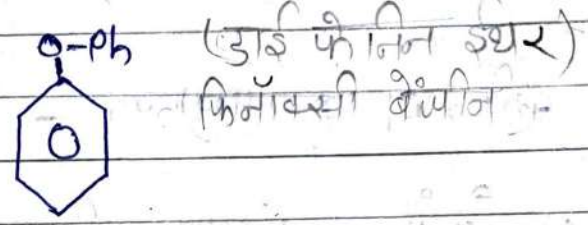 O-Ph (डाई फेनिन ईथर)
फिनॉक्सी बेंजीन